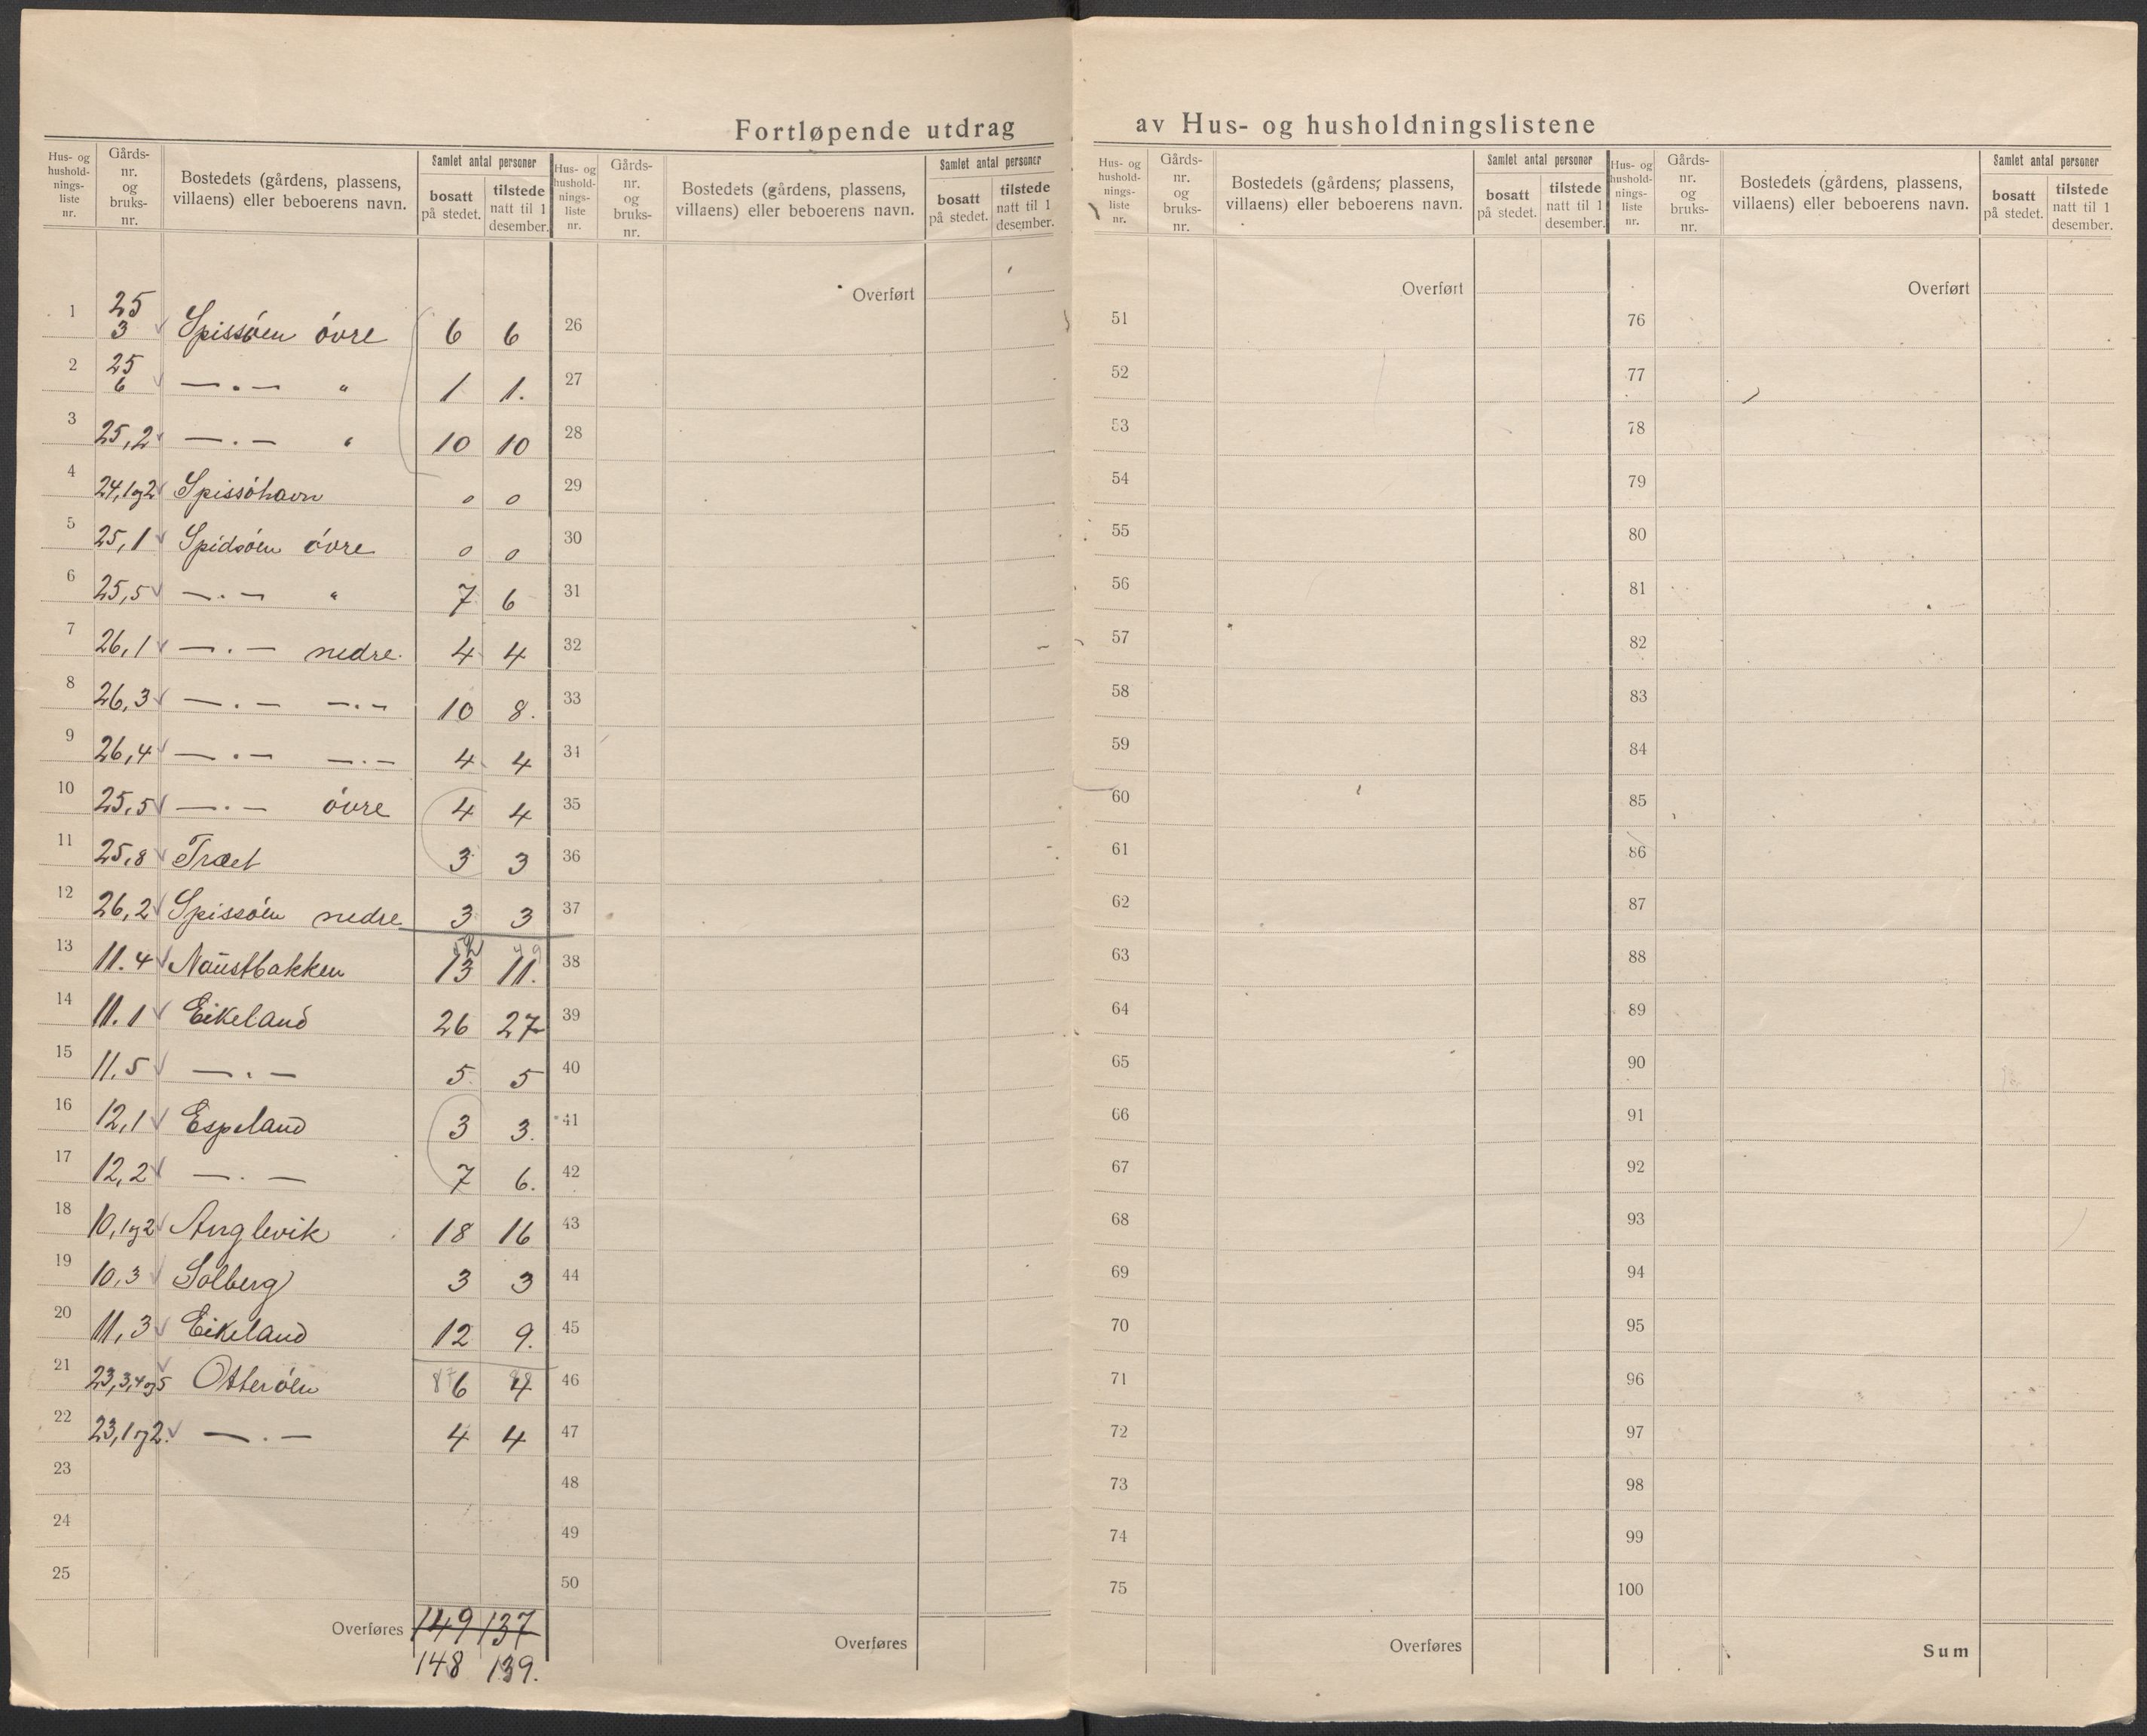 Fortløpende utdrag av Hus- og husholdningslistene
Hus- og hushold- nings- liste nr. | Gårds- nr. og bruks- nr. | Bostedets (gårdens, plassens, villaens) eller beboerens navn. | Samlet antal personer | bosatt på stedet. | tilstede natt til 1 desember.
Hus- og hushold- nings- liste nr. | Gårds- nr. og bruks- nr. | Bostedets (gårdens, plassens, villaens) eller beboerens navn. | Samlet antal personer | bosatt på stedet. | tilstede natt til 1 desember.
Hus- og hushold- nings- liste nr. | Gårds- nr. og bruks- nr. | Bostedets (gårdens, plassens, villaens) eller beboerens navn. | Samlet antal personer | bosatt på stedet. | tilstede natt til 1 desember.
Hus- og hushold- nings- liste nr. | Gårds- nr. og bruks- nr. | Bostedets (gårdens, plassens, villaens) eller beboerens navn. | Samlet antal personer | bosatt på stedet. | tilstede natt til 1 desember.
1 25 3 Spissöen övre 6 6
2 25 6 —„— „ 1 1.
3 25,2 —.— „ 10 10
4 24,1og2 Spissöhavn 0 0
5 25,1 Spidsöen övre 0 0
6 25,5 —.— „ 7 6
7 26,1 —.— nedre. 4 4
8 26,3 —.— —.— 10 8.
9 26,4 —.— —.— 4 4
10 25,5 —.— övre 4 4
11 25,8 Træet 3 3
12 26,2 Spissöen nedre 3 3
52 49
13 11.4 Naustbakken 13 11.
14 11.1 Eikeland 26 27
15 11.5 —.— 5 5
16 12,1 Espeland 3 3.
17 12,2 —.— 7 6.
18 10,1og2 Anglevik 18 16
19 10,3 Solberg 3 3
20 11,3 Eikeland 12 9.
87
21 23,3,4og5 Otteröen 6 4
22 23,1og2. —.— 4 4
23
24
25
Overføres 149 137
148 139.
Overført
26
27
28
29
30
31
32
33
34
35
36
37
38
39
40
41
42
43
44
45
46
47
48
49
50
Overføres
Overført
51
52
53
54
55
56
57
58
59
60
61
62
63
64
65
66
67
68
69
70
71
72
73
74
75
Overføres
Overført
76
77
78
79
80
81
82
83
84
85
86
87
88
89
90
91
92
93
94
95
96
97
98
99
100
Sum